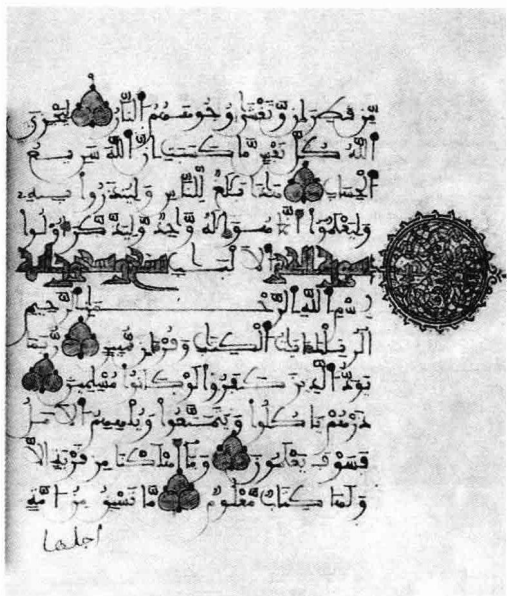 مِّن قَطِرَانٍ وَتَغْشَىٰ وُجُوهَهُمُ النَّارُ لِيَجْزِيَ
اللَّهُ كُلَّ نَفْسٍ مَّا كَسَبَتْ إِنَّ اللَّهَ سَرِيعُ
الْحِسَابِ هَٰذَا بَلَٰغٌ لِّلنَّاسِ وَلِيُنذَرُوا بِهِ
وَلِيَعْلَمُوا أَنَّمَا هُوَ إِلَٰهٌ وَٰحِدٌ وَلِيَذَّكَّرَ أُولُوا
الْأَلْبَٰبِ
بِسْمِ اللَّهِ الرَّحْمَٰنِ الرَّحِيمِ
الر تِلْكَ ءَايَٰتُ الْكِتَٰبِ وَقُرْءَانٍ مُّبِينٍ رُّبَمَا
يَوَدُّ الَّذِينَ كَفَرُوا لَوْ كَانُوا مُسْلِمِينَ
ذَرْهُمْ يَاكُلُوا وَيَتَمَتَّعُوا وَيُلْهِهِمُ الْأَمَلُ
فَسَوْفَ يَعْلَمُونَ وَمَا أَهْلَكْنَا مِن قَرْيَةٍ إِلَّا
وَلَهَا كِتَابٌ مَّعْلُومٌ مَّا تَسْبِقُ مِنْ أُمَّةٍ
اجلها